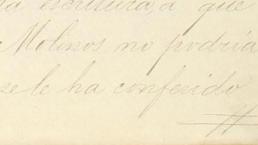 la escritura, a que
Molinos no podría
se le ha conferido